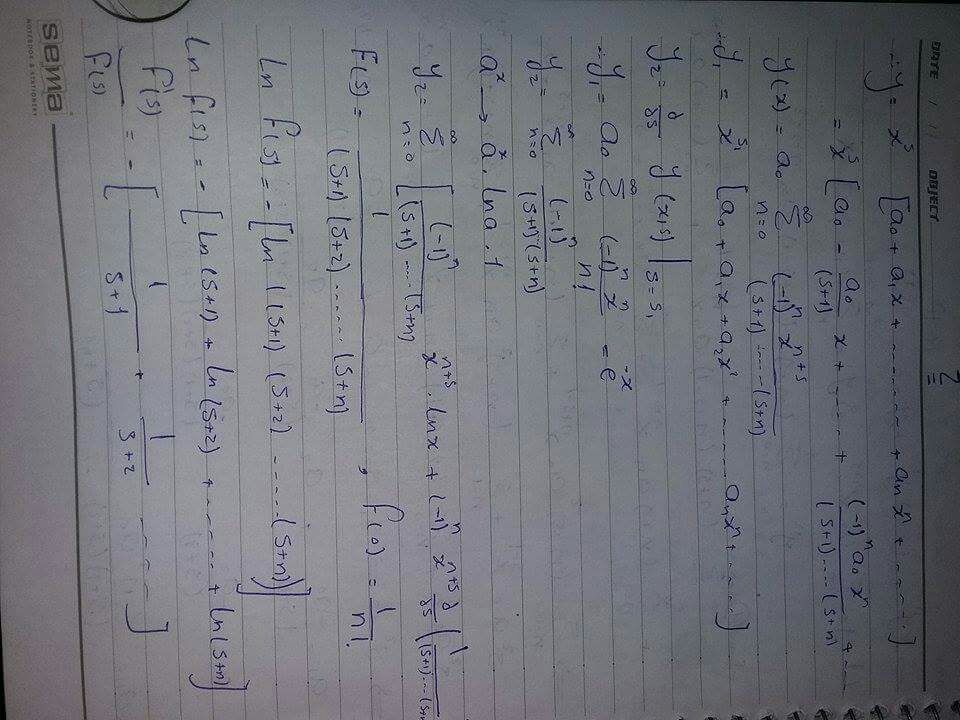 DATE / / OBJECT
2
∴ y = x^s [a₀ + a₁x + ........ + aₙ xⁿ + .....]
= x^s [a₀ - a₀/(s+1) x + ..... + (-1)ⁿ a₀ xⁿ/((s+1).....(s+n)) + ...
y(x) = a₀ Σ_{n=0}^{∞} (-1)ⁿ x^{n+s}/((s+1) .....(s+n))
∴ y₁ = x^{s₁} [a₀ + a₁x + a₂x² + ...... aₙxⁿ + .....]
y₂ = ∂/∂s y(x,s) |_{s=s₁}
∴ y₁ = a₀ Σ_{n=0}^{∞} (-1)ⁿ xⁿ/n! = e^{-x}
y₂ = Σ_{n=0}^{∞} (-1)ⁿ/((s+1)..(s+n))
a^x → a^x . ln a . 1
y₂ = Σ_{n=0}^{∞} [(-1)ⁿ/((s+1).....(s+n)) x^{n+s} . ln x + (-1)ⁿ . x^{n+s} ∂/∂s (1/((s+1)...(s+n
F(s) = 1/((s+1)(s+2)......(s+n)) , f(0) = 1/n!
Ln f(s) = -[ln ((s+1) (s+2) ......(s+n))]
Ln f(s) = -[ln(s+1) + ln(s+2) + ...... + ln(s+n)]
f'(s)/f(s) = -[1/(s+1) + 1/(s+2) .....]
sema
NOTEBOOK & STATIONERY